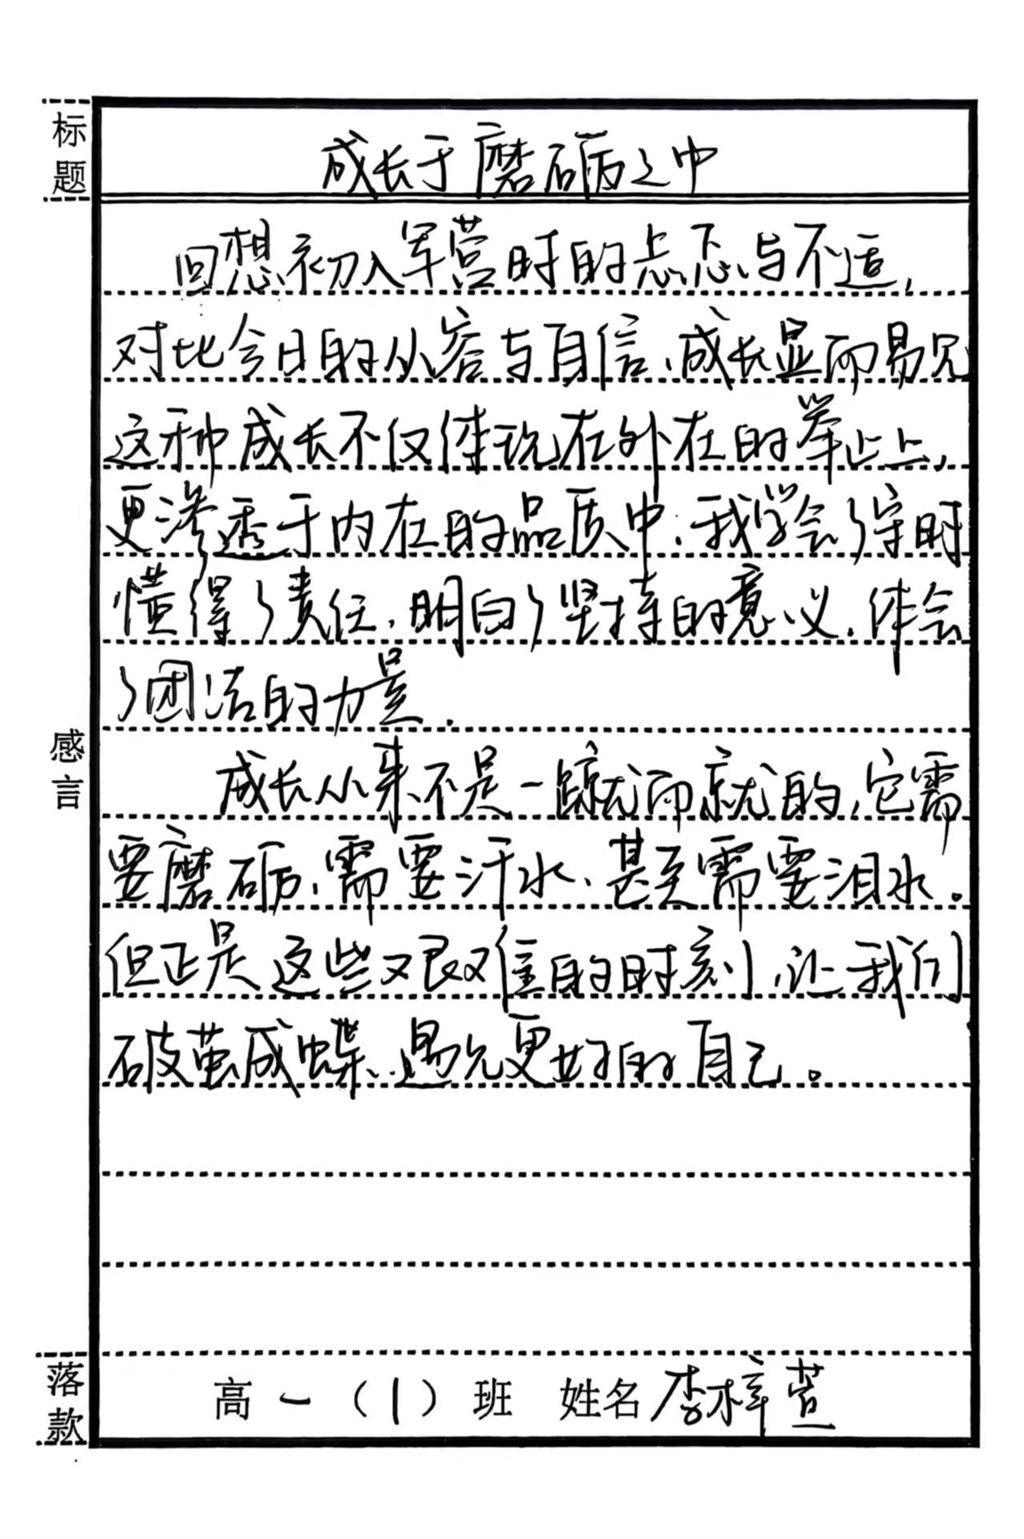 标题
成长于磨砺之中
回想初入军营时的忐忑与不适,
对比今日的从容与自信,成长显而易见
这种成长不仅体现在外在的举止上,
更渗透于内在的品质中.我学会了守时
懂得了责任,明白了坚持的意义,体会
了团洁的力量.
感言
成长从来不是一蹴而就的,它需
要磨砺,需要汗水,甚至需要泪水.
但正是这些艰难的时刻,让我们
破茧成蝶,遇见更好的自己。
落款
高一(1)班 姓名 李梓萱